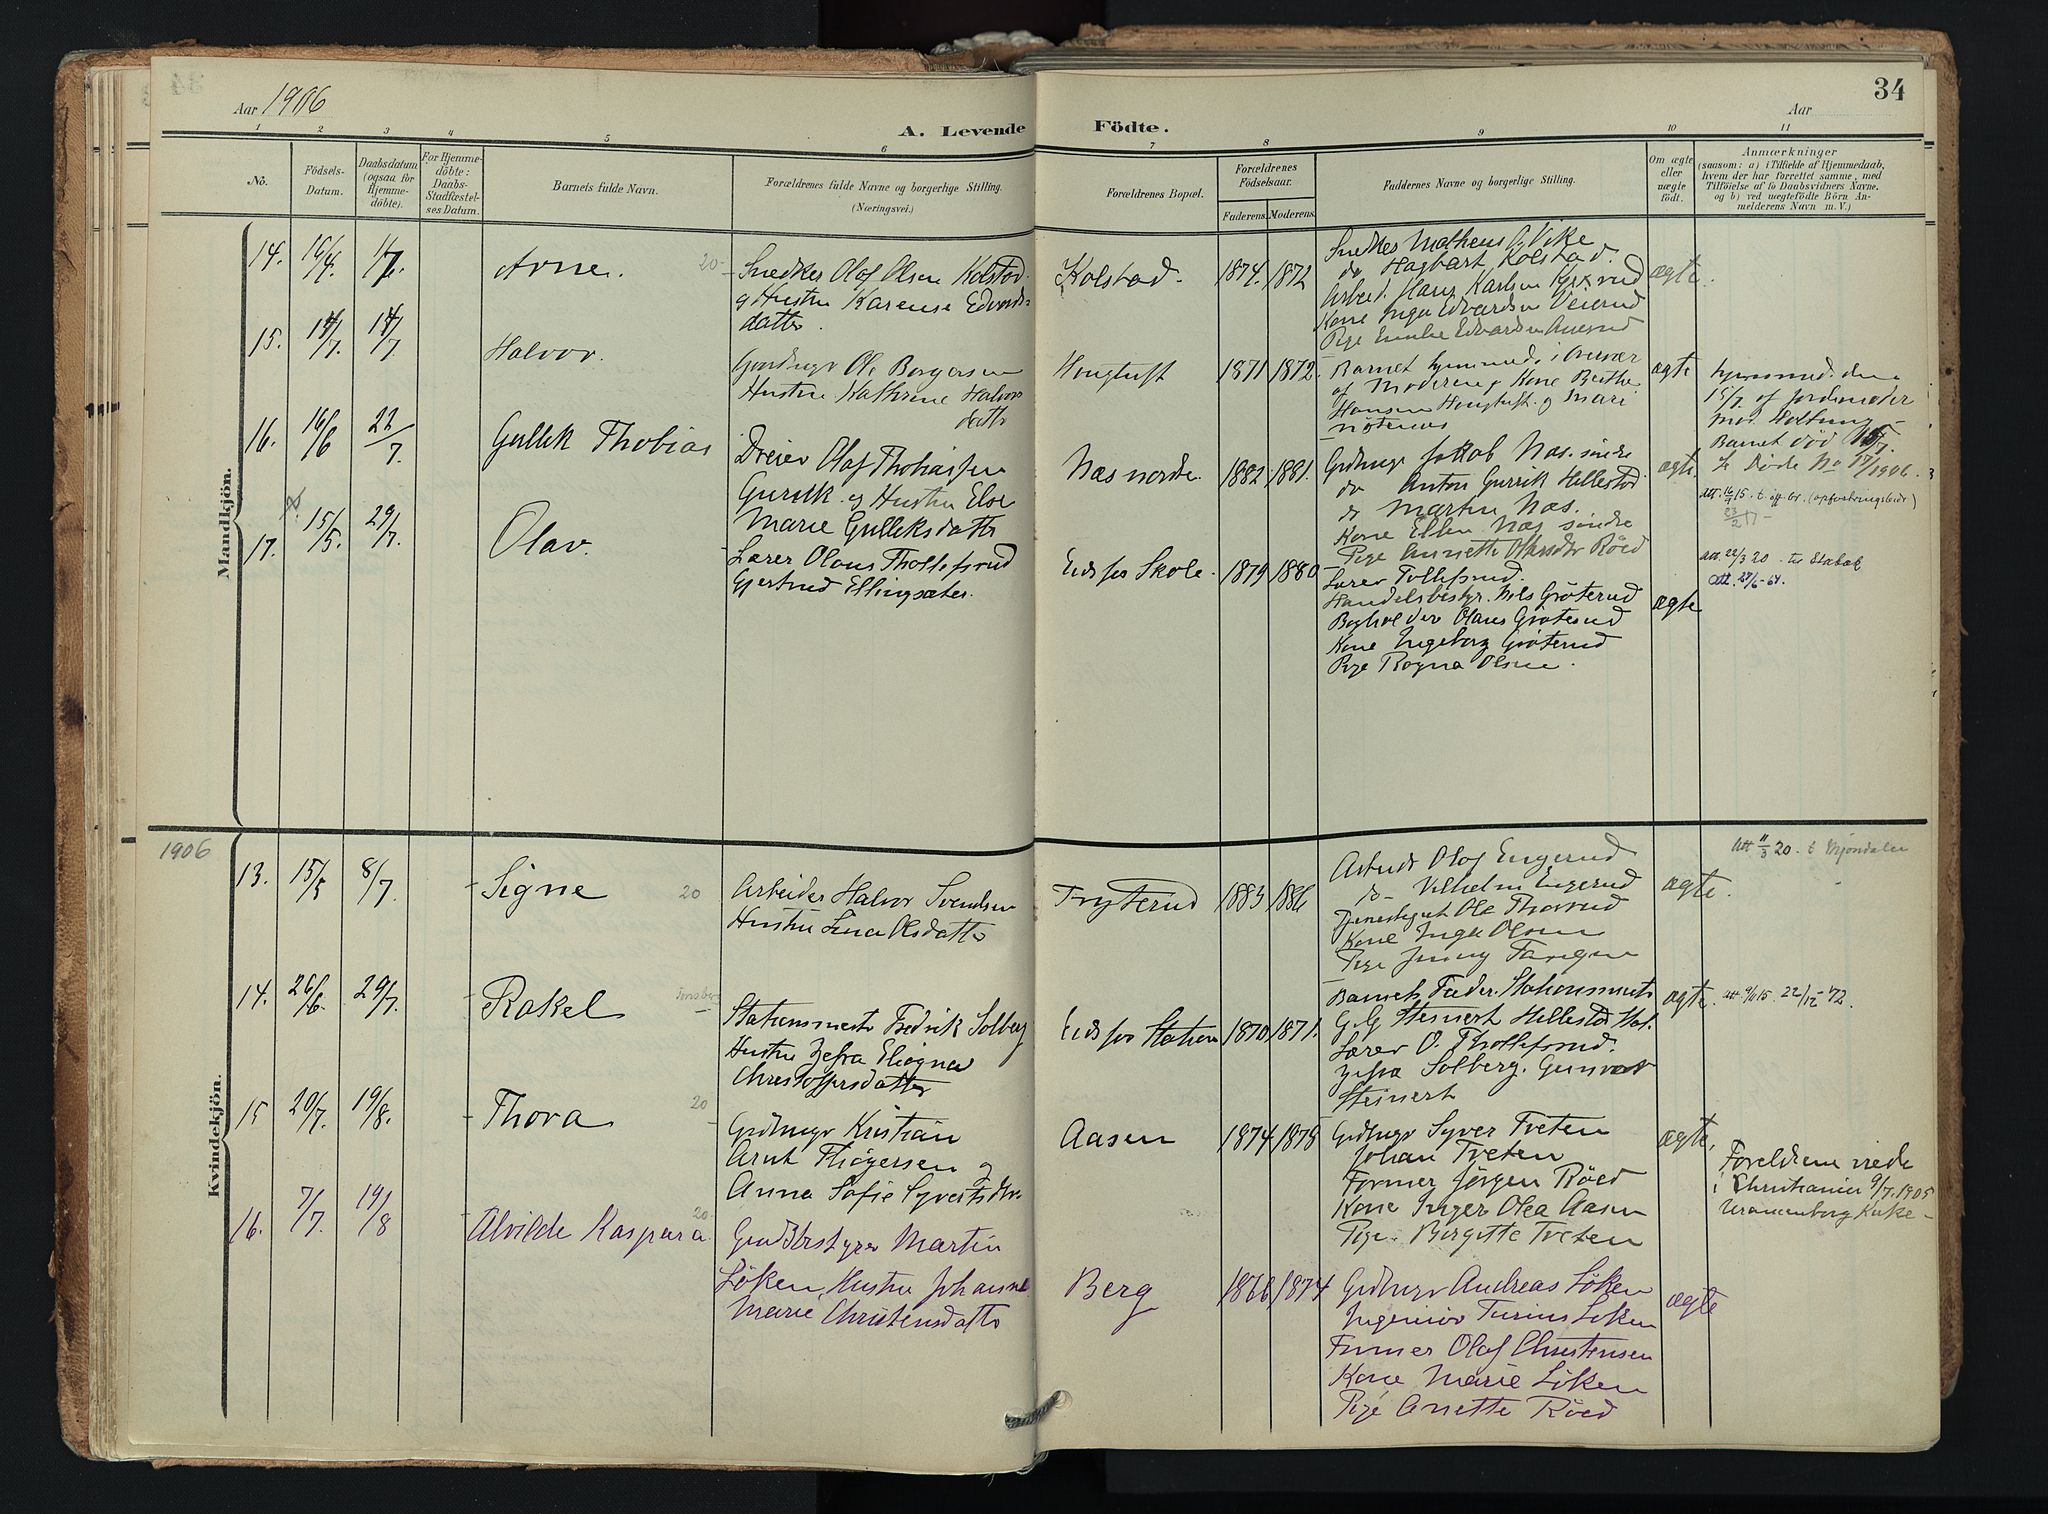 34
Aar 1906
Aar
A. Levende Födte.
1 2 3 4 5 6 7 8 9 10 11
No.
Födsels-Datum.
Daabsdatum (ogsaa for Hjemmedöbte).
For Hjemmedöbte: Daabs-Stadfæstelses Datum.
Barnets fulde Navn.
Forældrenes fulde Navne og borgerlige Stilling.
(Næringsvei.)
Forældrenes Bopæl.
Forældrenes Födselsaar.
Faderens. Moderens.
Faddernes Navne og borgerlige Stilling.
Om ægte eller uægte födt.
Anmærkninger
(saasom: a) i Tilfælde af Hjemmedaab,
hvem der har forrettet samme, med
Tilföielse af to Daabsvidners Navne,
og b) ved uegtefödte Börn Anmelderens Navn m. V.)
Mandkjön.
14. 16/4. 1/7. Arne. 20
Snedker Olaf Olsen Kolstad
og Hustru Karense Edvards-
datter.
Kolstad. 1874. 1872
Snedker Mathens Vike
do Hagbart Kolstad.
Arbeid. Hans Karlsen
Kone Inga Edvardsen Veierud
Pige Emilie Edvardsen
ægte.
15. 14/7. 14/7 Halvor.
Gaardbrgr Ole Borgersen
Hustru Kathrine Halvors
datter
Hougtuft 1871 1872.
Barnet hjemmed.
af Moderen og Kone Berthe
Hansen Hougtuft og Mari
ægte
hjemmed. den
15/7 af Jordemoder
Barnet död 15/7
Se Döde No 17/1906.
16. 16/6 22/7 Gullik Thobias
Dreier Olaf Thobiassen
Gurrik og Hustru Else
Marie Gulliksdatter
Næs nordre. 1882. 1881.
Grdbrugr Jakob Næs söndre
do Anton Gurrik Hillestad
do Martin Næs.
Kone Ellen Næs söndre
Pige Annette Röed
ægte.
17. 15/5. 29/7. Olav.
Lærer Olaus Thollefsrud
Gjertrud Ellingsæter.
Eidsfos Skole. 1879 1880
Lærer Tollefsrud.
Handelsbestyr. Nils Gröterud
Bogholder Olaus Gröterud
Kone Ingeborg Gröterud
Pige Ragna Olsen.
ægte
Att. 22/3 20. til Stabæk
Att. 27/6-64.
1906
Kvindekjön.
13. 15/5 8/7. Signe 20
Arbeider Halvor Svendsen
Hustru Lina Olsdatter
Fryterud 1883 1886
Arbeider Olaf Engerud
do Vilhelm Engerud
Tjenestegut Ole Thorrud
Kone Inga Olsen
Pige Jenny
ægte.
Att 11/3 20. t. Mjöndalen
14. 26/6. 29/7. Rakel Tønsberg
Stationsmester Fredrik Solberg
Hustru Zefra
Christoffersdatter
Eidsfos Station 1870 1871.
Barnets Fader. Stationsmester
G. G. Steinert Hillestad Stat.
Lærer O. Thollefsrud.
Zefra Solberg. Gunvor
Steinert
ægte. Att. 9/11 15. 22/12-72.
15 20/7. 19/8. Thora 20
Grdbrugr Kristian
Arnt Thögersen og
Anna Sofie Syvertsdtr
Aasen 1874 1878
Grdbrugr Syver Tveten
Johan Tveten
Former Jörgen Röed
Kone Inger Olea Aasen
Pige Birgitte Tveten
ægte.
Foreldrene viede
i Christiania 9/7.1905
Uranienborg Kirke-
16. 7/7. 19/8 Alvilde Kaspara 20
Grdbestyrer Martin
Löken, Hustru Johanne
Marie Christensdatter
Berg 1866 1874
Grdbrugr Andreas Löken
Ingeniör Löken
Former Olaf Christensen
Kone Marie Löken
Pige Anette Röed
ægte